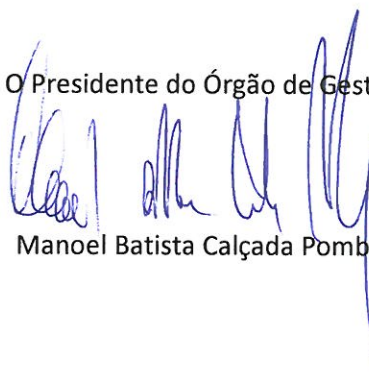 O Presidente do Órgão de Gest
Manoel Batista Calçada Pomb